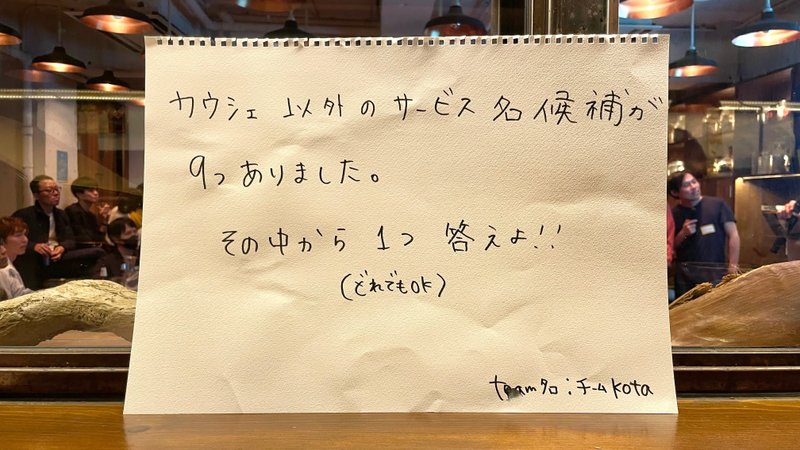 カウシェ 以外のサービス名候補が
9つありました。
その中から 1つ 答えよ!!
(どれでもOK)
team名:チームKota